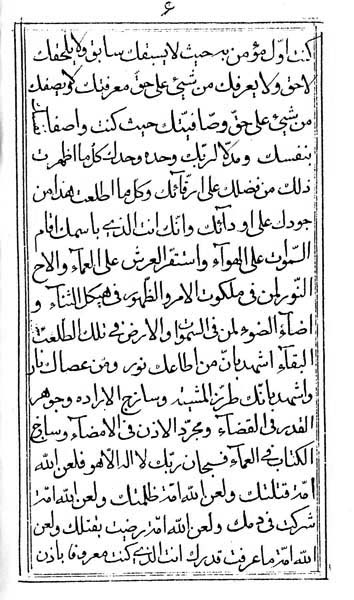 ٦
كنت اوّل مؤمن به حيث لا يسبقك سابق ولا يلحقك
لاحق ولا يعرفك من شيئ على حقّ معرفتك كلا يصفك
من شيئ على حقّ وصّافيّتك حيث كنت واصفا
بنفسك ومدلا لربّك وحده وحدك كل ما اظهرت
ذلك من فضلك على ارقّائك وكل ما اطلعت بهذا من
جودك على اودّائك وانّك انت الذي باسمك اقام
السموات على الهوآء واستقر العرش على العمآء والاح
النّور لمن في ملكوت الامر والظهور في هيكل الثنآء و
اضآء الضوء لمن في السموات والارض في تلك الطلعت
البقآء اشهد بانّ من اطاعك نور ومن عصاك نار
واشهد بانّك طرز المشيّة وساذج الاراده وجوهر
القدر في القضآء ومجرّد الاذن في الامضآء وساذج
الكتاب في العمآء فسبحان ربّك لا اله الّا هو فلعن الله
امّة قتلتك ولعن الله امّة ظلمتك ولعن الله امّة
شركت في دمك ولعن الله امّة رضيت بقتلك ولعن
الله امّة ما عرفت قدرك انت الذي كنت معروفا باذن